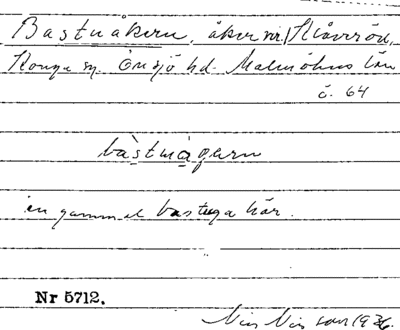 Bastuåkern, åker nr 1 Klöveröd,
Konga sn. Önsjö hd. Malmöhus län
č. 64
bàstuàgern
en gammal bastuga här.
Nr 5712.
Nils Nilsson 1936.